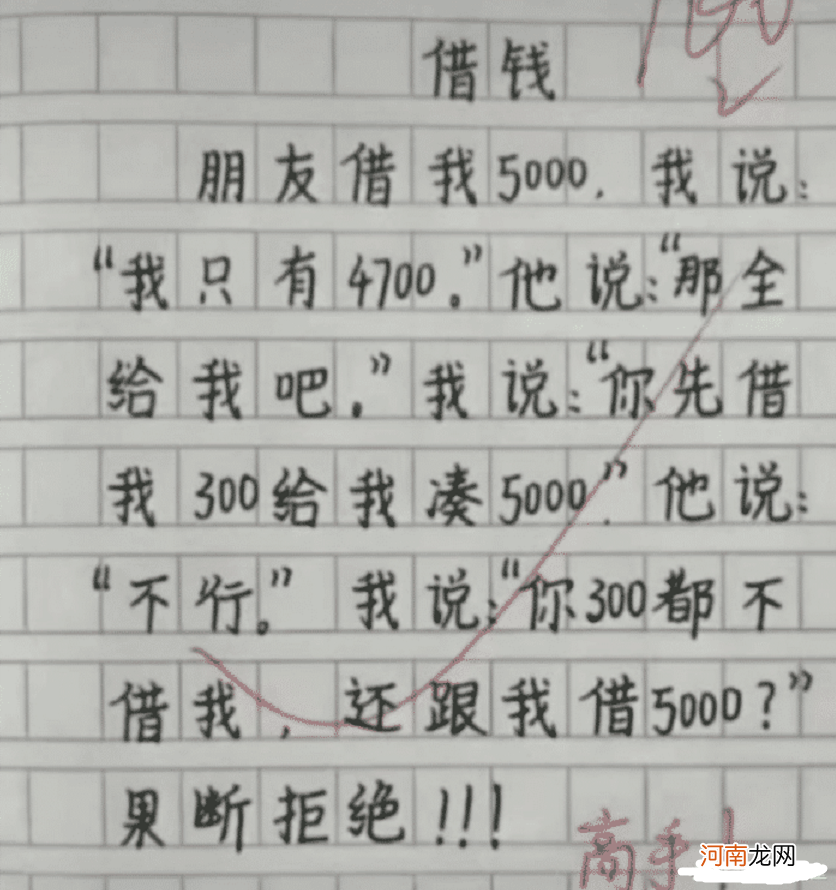 100
借钱
朋友借我5000.我说:
“我只有4700。”他说:“那全
给我吧.”我说:“你先借
我300给我凑5000.”他说:
“不行。”我说:“你300都不
借我,还跟我借5000?”
果断拒绝!!!
高手!
河南龙网